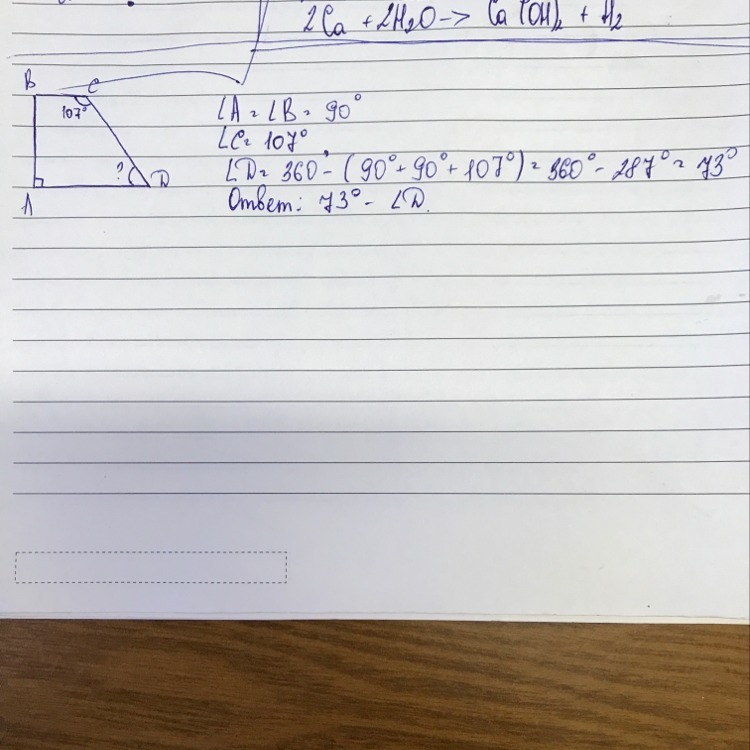 2Ca + 2H2O -> Ca(OH)2 + H2
B C
107°
? D
A
∠A = ∠B = 90°
∠C = 107°
∠D = 360° - (90° + 90° + 107°) = 360° - 287° = 73°
Ответ: 73° - ∠D.